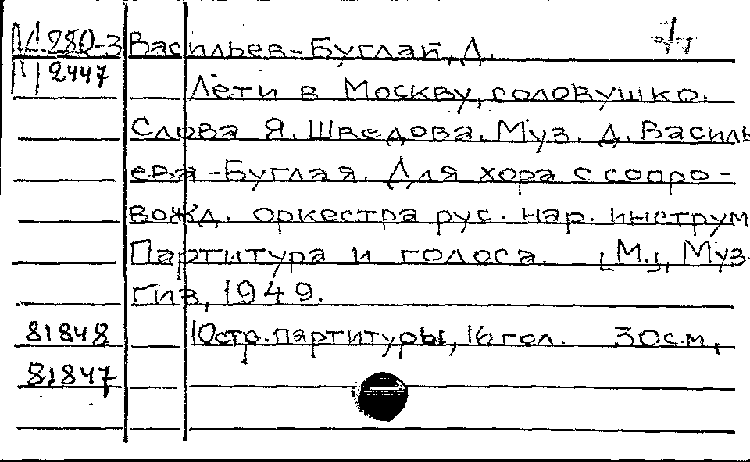 М 280-3 Васильев-Буглай, Д.
2447 Лети в Москву, соловушко.
Слова Я. Шведова. Муз. Д. Василь
ева-Буглая. Для хора с сопро-
вожд. оркестра рус. нар. инструм
Партитура и голоса. [М.], Муз-
гиз, 1949.
81848 10 стр. партитуры, 16 гол. 30 см.
81847